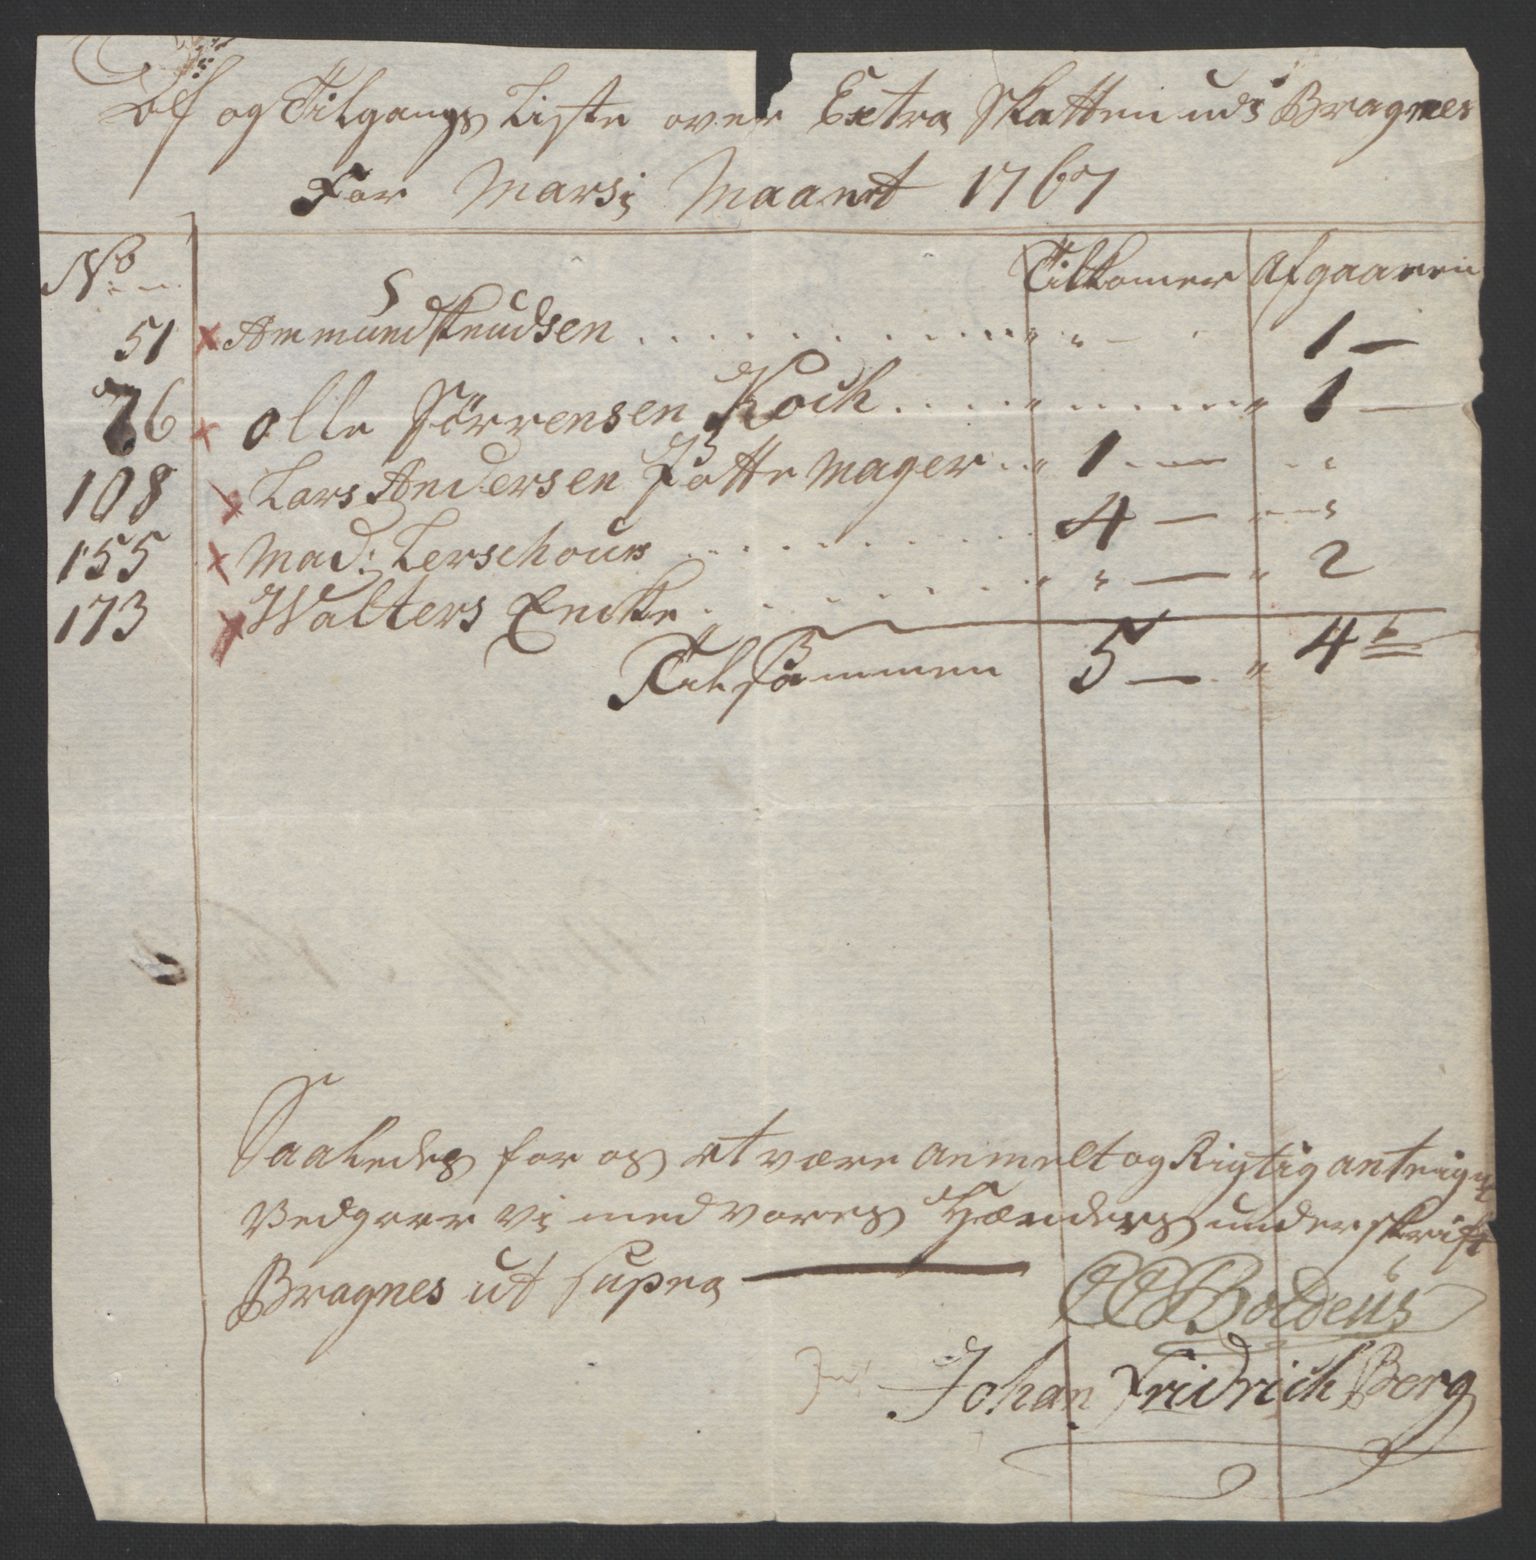 Af og Tilgangs Liste over Extra Skatten udi Bragnes
For Marsi Maanet 1767
No Tilkomer Afgaaren
51 Ammund Knudsen . . . . " " — 1 —
76 Olle Sörrensen Koch . . . . " 1 —
108 Lars Andersen Pottemager . . " 1 — " "
155 Mad: Lerschous . . . . 4 — " "
173 Walters Encke . . . . " " — " 2
Tilsammen 5 — " 4
Saaledes for os at være anmelt og Rigtig
Vedgaar vi med vores Hænders underskrift
Bragnes ut supra —
Boldeüs
Johan Fridrich Berg